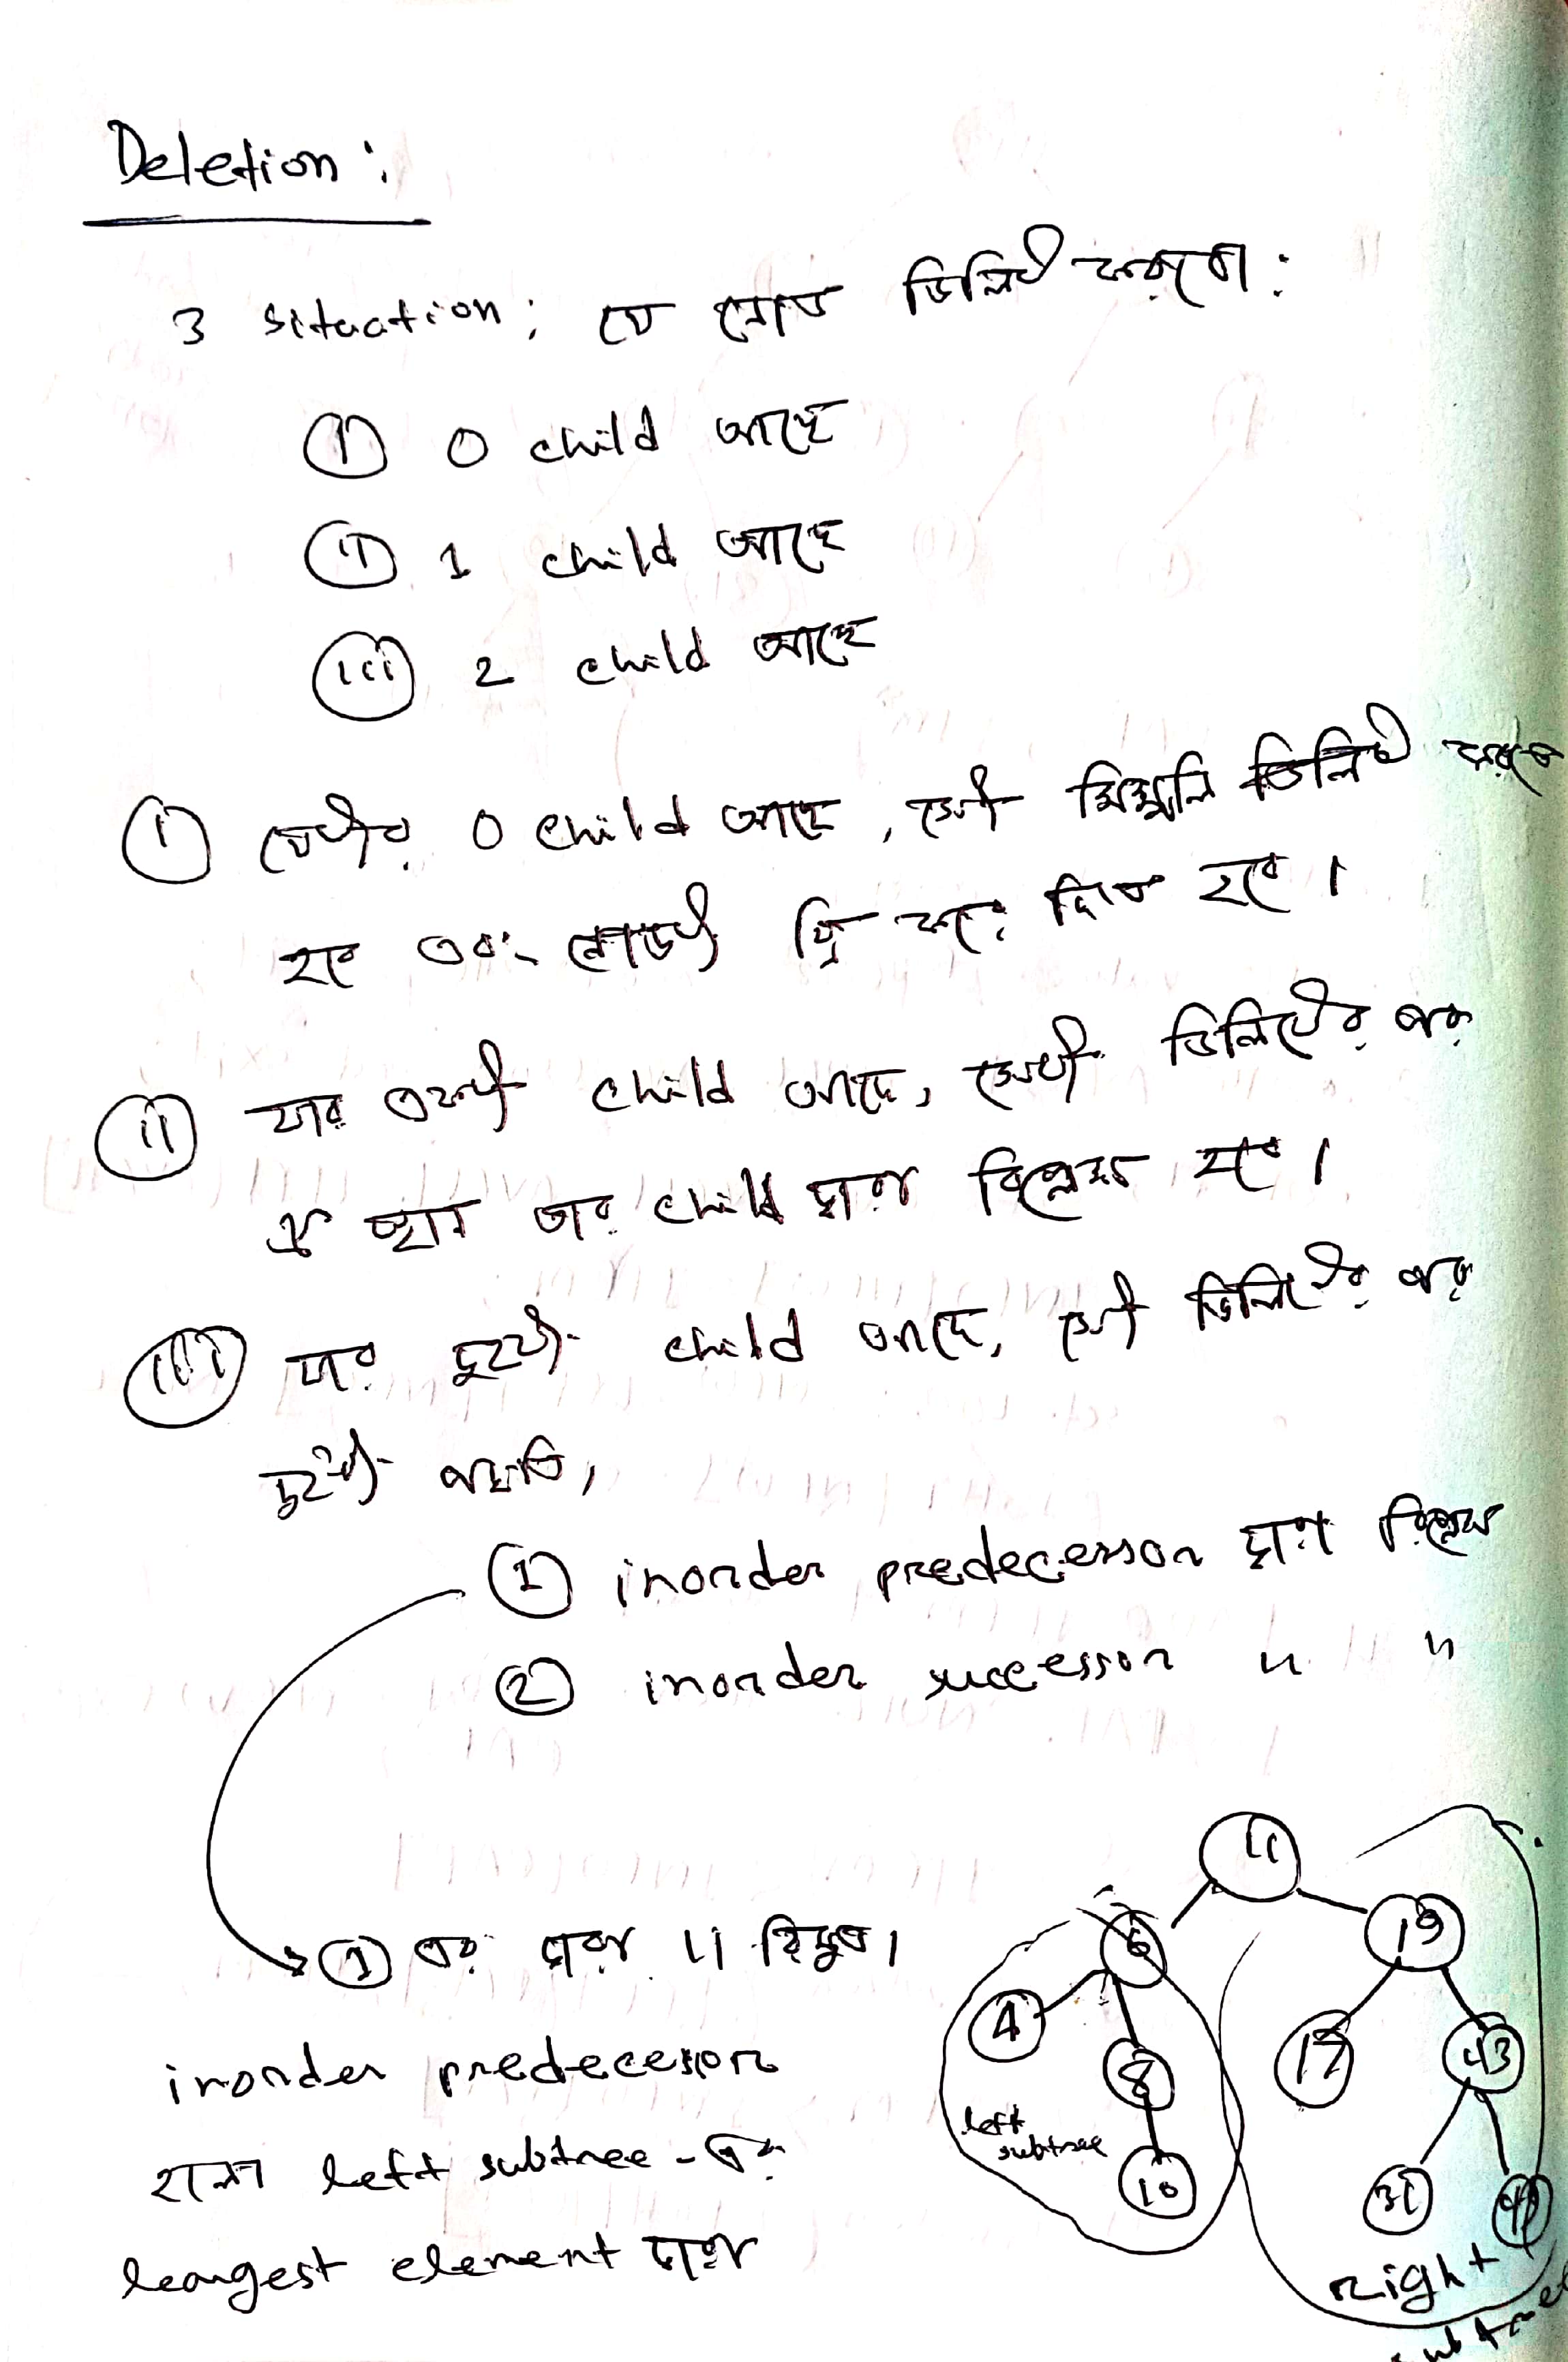 Deletion :
3 situation; যে নোড ডিলিট করবো :
(i) 0 child আছে
(ii) 1 child আছে
(iii) 2 child আছে
(i) যেটার 0 child আছে, সেটা সিম্পলি ডিলিট করতে
হবে এবং নোডটা ফ্রি করে দিতে হবে।
(ii) যার একটা child আছে, সেটা ডিলিটের পর
ঐ স্থান তার child দ্বারা রিপ্লেসড হবে।
(iii) যার দুইটা child আছে, সেটা ডিলিটের পর
দুইটা পদ্ধতি,
(1) inorder predecessor দ্বারা রিপ্লেস
(2) inorder successor " "
(1) এর দ্বারা 11 রিমুভ।
inorder predecessor
হলো left subtree - এর
largest element দ্বারা
11
6 19
4 8 17 43
left
subtree
10 31
right
subtree